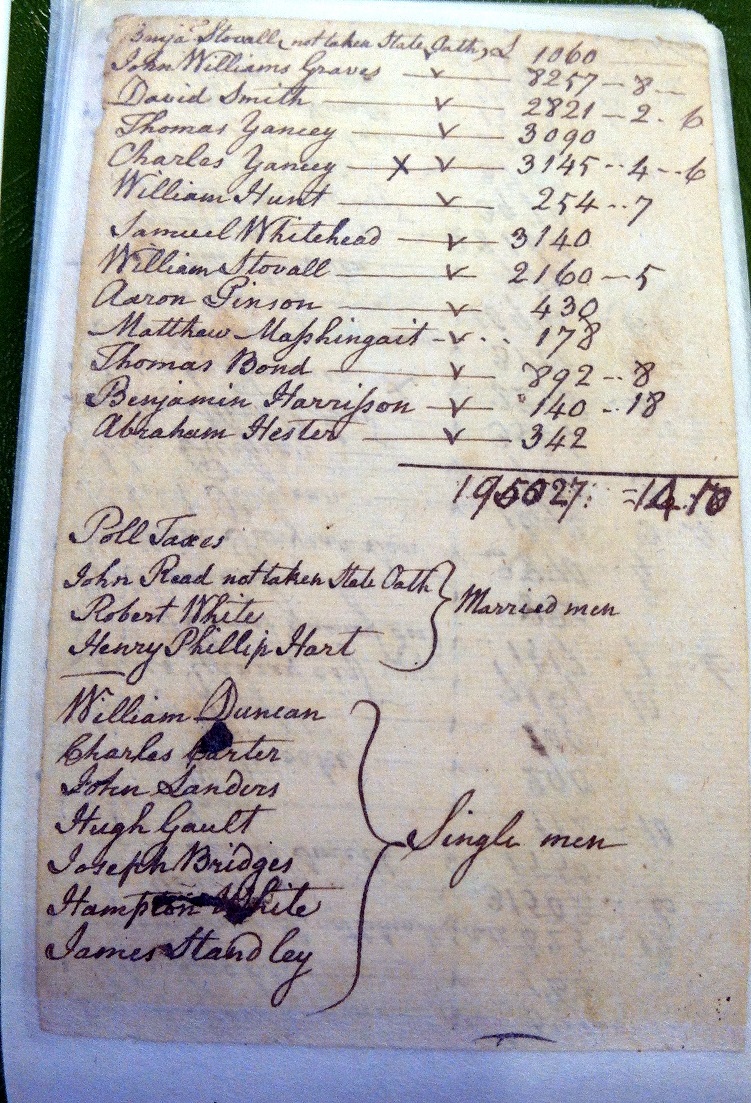 Benja Stovall not taken State Oath, £ 1060
John Williams Graves — v — 8257 – 8 –
David Smith — v — 2821 – 2. 6
Thomas Yancey — v — 3090
Charles Yancey — X v — 3145 -- 4 -- 6
William Hunt — v — 254 -- 7
Samuel Whitehead — v — 3140
William Stovall — v — 2160 – 5
Aaron Pinson — v 430
Matthew Maſshingait - v - . . 178
Thomas Bond — v — 892 -- 8
Benjamin Harriſson — v — 140 -- 18
Abraham Hester — v — 342
195027: = 14.10
Poll Taxes
John Read not taken State Oath
Robert White
Henry Phillip Hart
Married men
William Duncan
Charles Carter
John Sanders
Hugh Gault
Joseph Bridges
Hampton White
James Standley
Single men